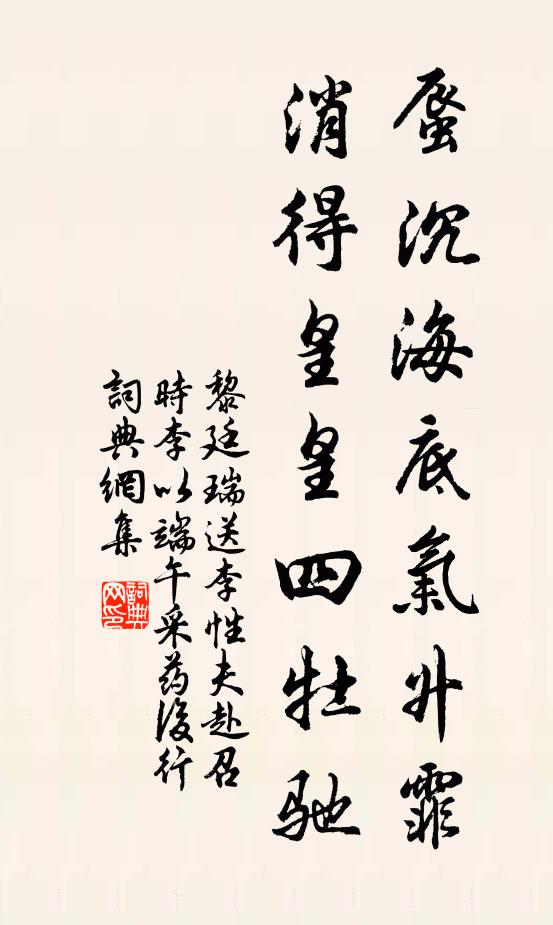 蜃沉海底氣升霏
消得皇皇四牡馳
黎廷瑞送李性夫赴召
時李以端午采药後行
詞典網集
詞典网印